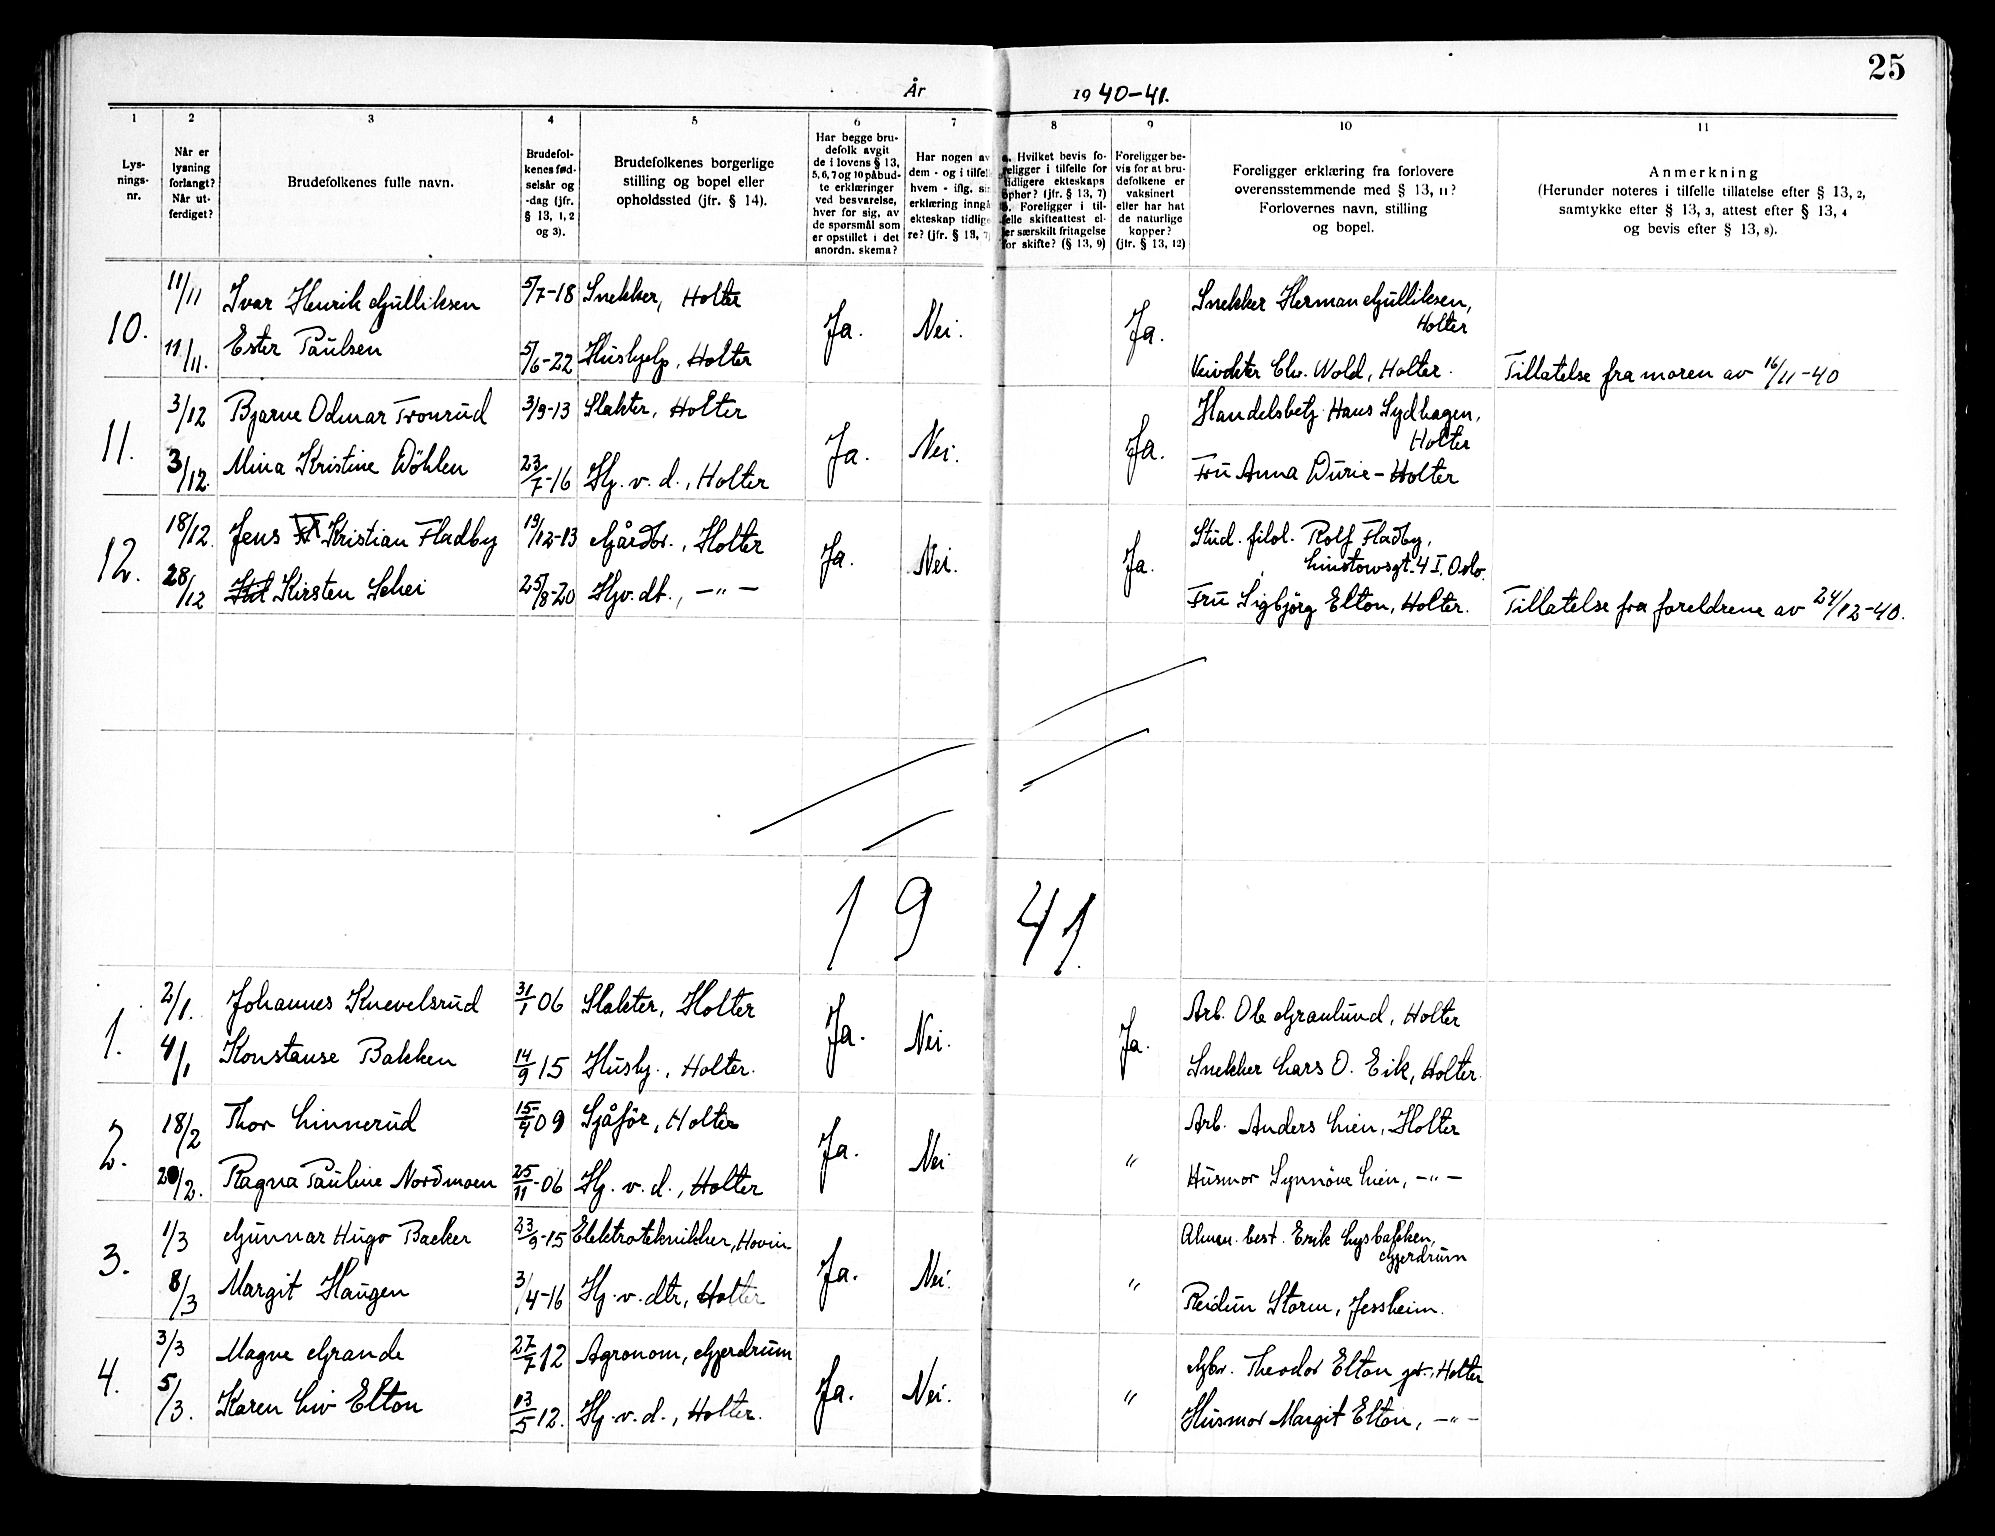 25
År 1940-41.
1
2
3
4
5
6
7
8
9
10
11
Lys-
nings-
nr.
Når er
lysning
forlangt?
Når ut-
ferdiget?
Brudefolkenes fulle navn.
Brudefol-
kenes fød-
selsår og
-dag (jfr.
§ 13, 1, 2
og 3).
Brudefolkenes borgerlige
stilling og bopel eller
opholdssted (jfr. § 14).
Har begge bru-
defolk avgit
de i lovens § 13,
5, 6, 7 og 10 påbud-
te erklæringer
ved besvarelse,
hver for sig, av
de spørsmål som
er opstillet i det
anordn. skema?
Har nogen av
dem - og i tilfelle
hvem - iflg. sin
erklæring inngå
ekteskap tidlige
re? (jfr. § 13, 7)
a. Hvilket bevis fo-
religger i tilfelle for
tidligere ekteskaps
ophør? (jfr. § 13, 7)
b. Foreligger i til-
felle skifteattest el-
ler særskilt fritagelse
for skifte? (§ 13, 9)
Foreligger be-
vis for at bru-
defolkene er
vaksinert
eller har hat
de naturlige
kopper?
(jfr. § 13, 12)
Foreligger erklæring fra forlovere
overensstemmende med § 13, 11?
Forlovernes navn, stilling
og bopel.
Anmerkning
(Herunder noteres i tilfelle tillatelse efter § 13, 2,
samtykke efter § 13, 3, attest efter § 13, 4
og bevis efter § 13, 8).
10. 11/11 Ivar Henrik Gulliksen 5/7-18 Snekker, Holter Ja. Nei. Ja. Snekker Herman Gulliksen,
Holter
11/11. Ester Paulsen 5/6-22 Hushjelp, Holter Veivokter Chr. Wold, Holter. Tillatelse fra moren av 16/11-40
11. 3/12 Bjarne Odmar Tronrud 3/9-13 Slakter, Holter Ja. Nei. Ja. Handelsbetj. Hans Sydhagen,
Holter
3/12. Mina Kristine Döhlen 23/7-16 Hj. v. d., Holter Fru Anna Durie - Holter
12. 18/12. Jens Kristian Fladby 19/12-13 Gårdbr., Holter Ja. Nei. Ja. Stud. filol. Rolf Fladby,
Linstowsgt. 4 I, Oslo.
28/12 Kirsten Schei 25/8-20 Hjv. dt., -"- Fru Sigbjörg Elton, Holter. Tillatelse fra foreldrene av 24/12-40.
1941.
1. 2/1. Johannes Knevelsrud 31/1 06 Slakter, Holter Ja. Nei. Ja. Arb. Ole Granlund, Holter
4/1 Konstanse Bakken 14/9 15 Hushj., Holter. Snekker Lars O. Eik, Holter.
2. 18/2 Thor Linnerud 15/4 09 Sjåför, Holter Ja. Nei " Arb. Anders Lien, Holter
20/2. Ragna Pauline Nordmoen 25/11-06 Hj. v. d., Holter Husmor Synnöve Lien, -"-
3. 1/3 Gunnar Hugo Backer 23/9-15 Elektrotekniker, Hovin Ja. Nei. " Almen. best. Erik Lysbakken,
Gjerdrum
8/3 Margit Haugen 3/4-16 Hj. v. dtr, Holter Reidun Storm, Jessheim.
4. 3/3 Magne Grande 27/7 12 Agronom, Gjerdrum Ja. Nei. " Gbr. Theodor Elton jr., Holter
5/3. Karen Liv Elton 13/5 12. Hj. v. d., Holter. Husmor Margit Elton, -"-